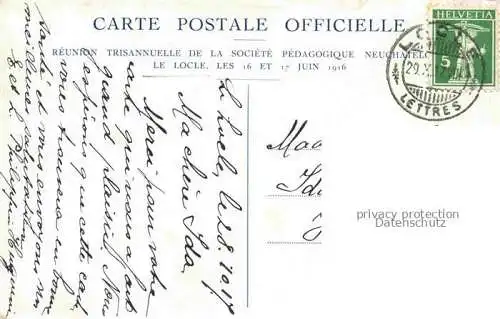 CARTE POSTALE OFFICIELLE
RÉUNION TRISANNUELLE DE LA SOCIÉTÉ PÉDAGOGIQUE NEUCHATEL
LE LOCLE, LES 16 ET 17 JUIN 1916
HELVETIA
5
LOCLE
29.X
LETTRES
Le Locle, le 28.10.17
Ma chère Ida,
Merci pour votre
carte qui nous a fait
grand plaisir. Nous
espérons que cette carte
vous trouvera en bonne
santé et vous envoyons nos
meilleures
E. et
Ma
Id
privacy protection
Datenschutz